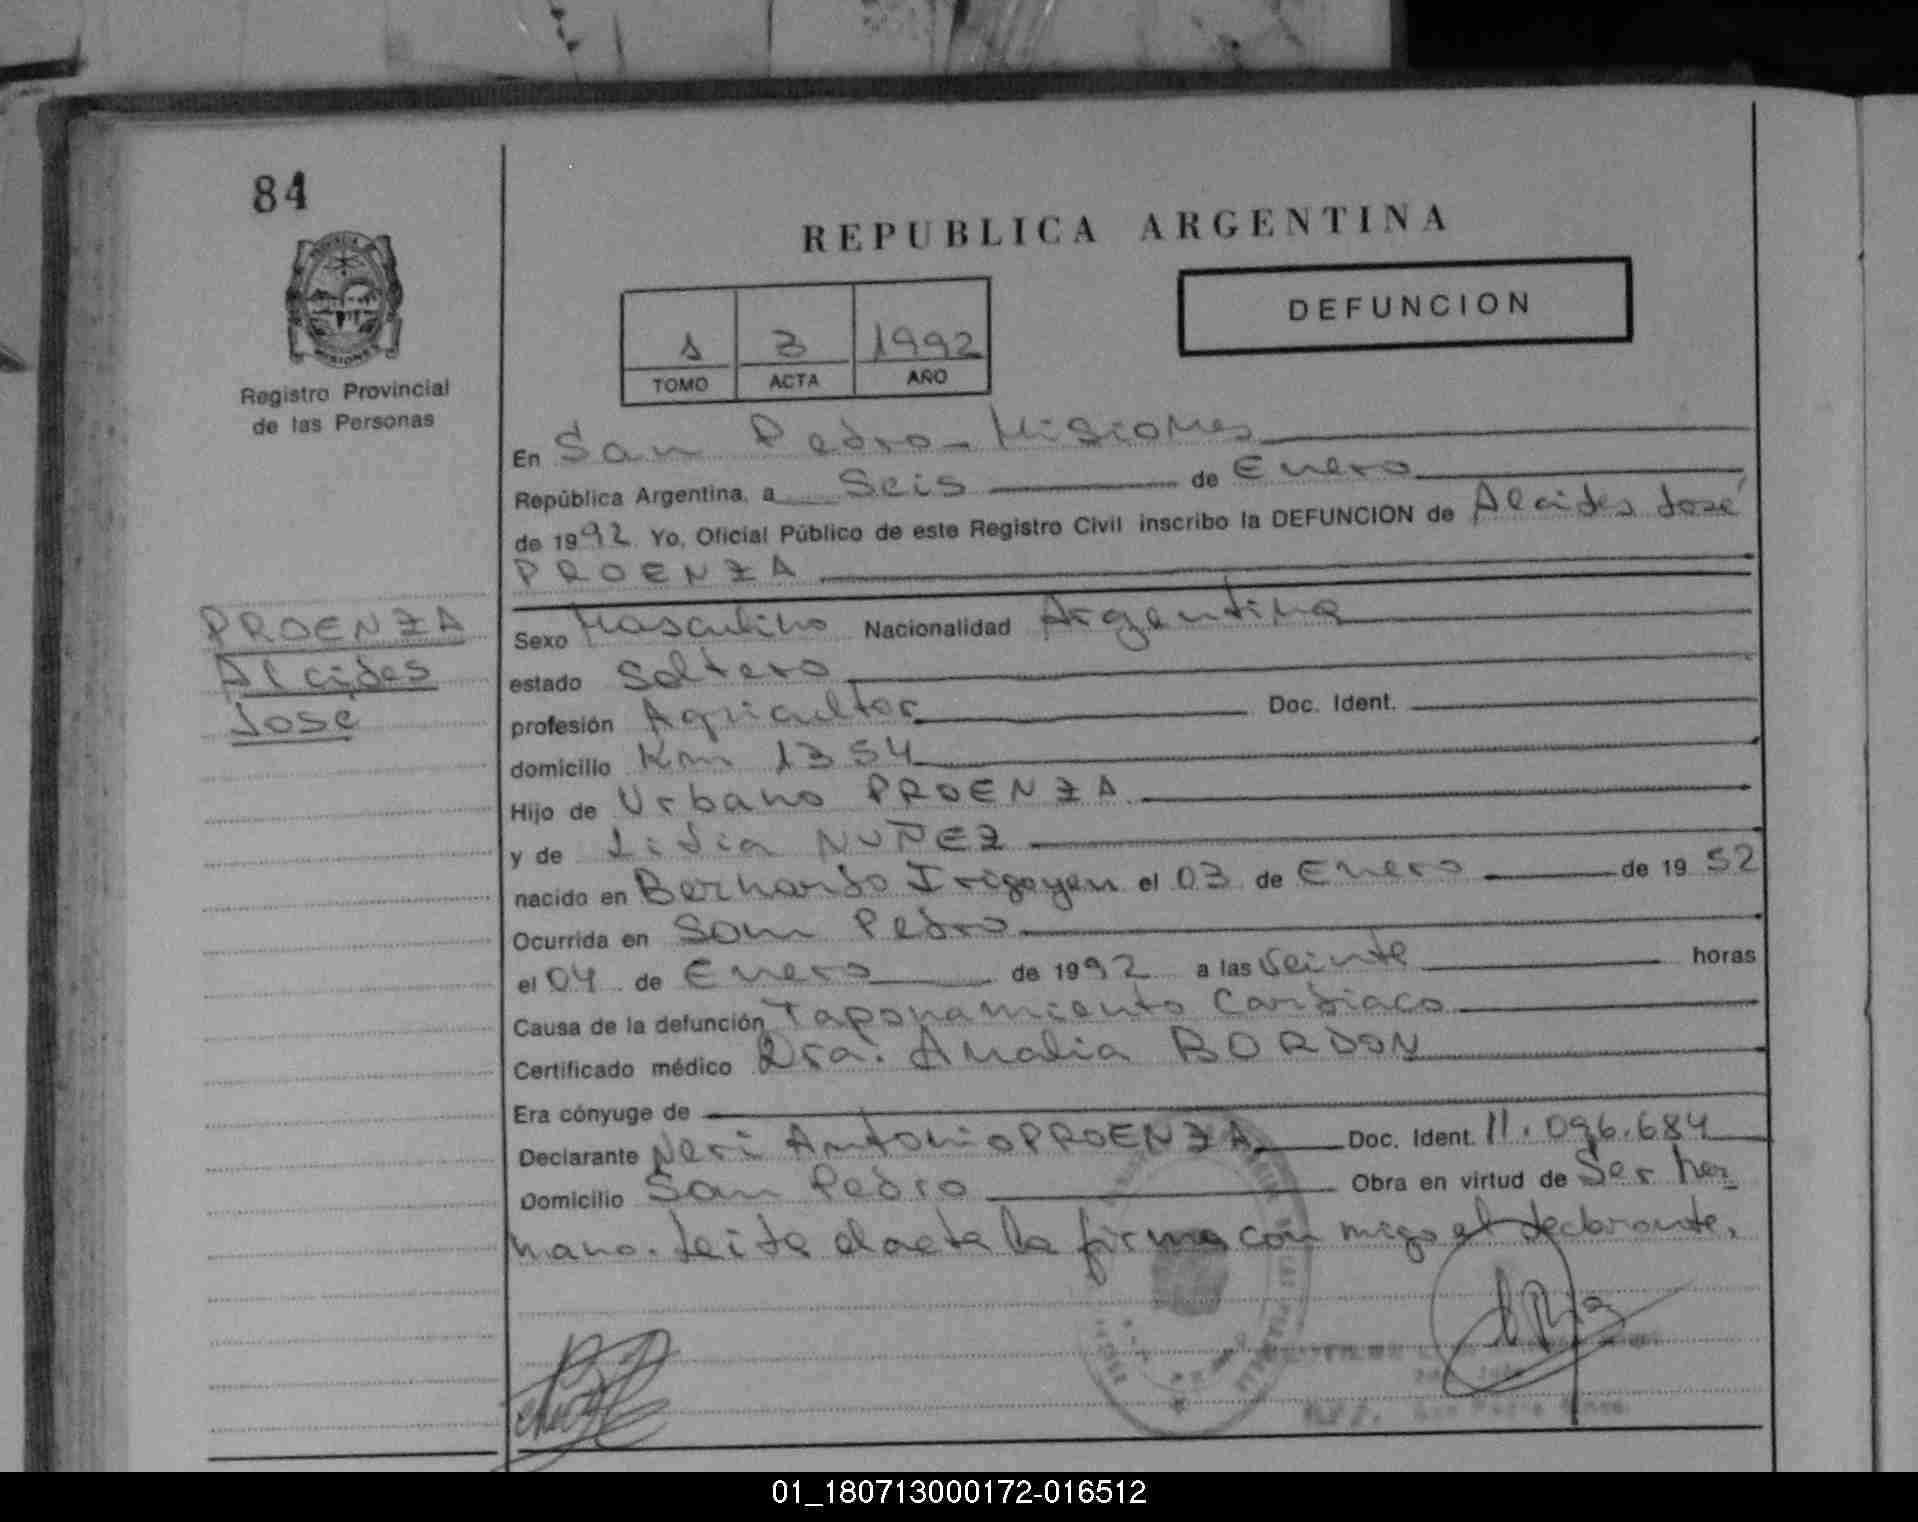 84
MISIONES
Registro Provincial
de las Personas
REPUBLICA ARGENTINA
DEFUNCION
1 3 1992
TOMO ACTA AÑO
En San Pedro - Misiones
República Argentina, a Seis de Enero
de 1992 Yo, Oficial Público de este Registro Civil inscribo la DEFUNCION de Alcides José
PROENZA
PROENZA
Alcides
José
Sexo Masculino Nacionalidad Argentina
estado Soltero
profesión Agricultor Doc. Ident.
domicilio Km 1354
Hijo de Urbano PROENZA
y de Lidia NUÑEZ
nacido en Bernardo Irigoyen el 03 de Enero de 1952
Ocurrida en San Pedro
el 04 de Enero de 1992 a las veinte horas
Causa de la defunción Taponamiento Cardiaco
Certificado médico Dra. Analia BORDON
Era cónyuge de
Declarante Neri Antonio PROENZA Doc. Ident. 11.096.684
Domicilio San Pedro Obra en virtud de Ser her
mano. Leida el acta la firma con migo el declarante.
01_180713000172-016512